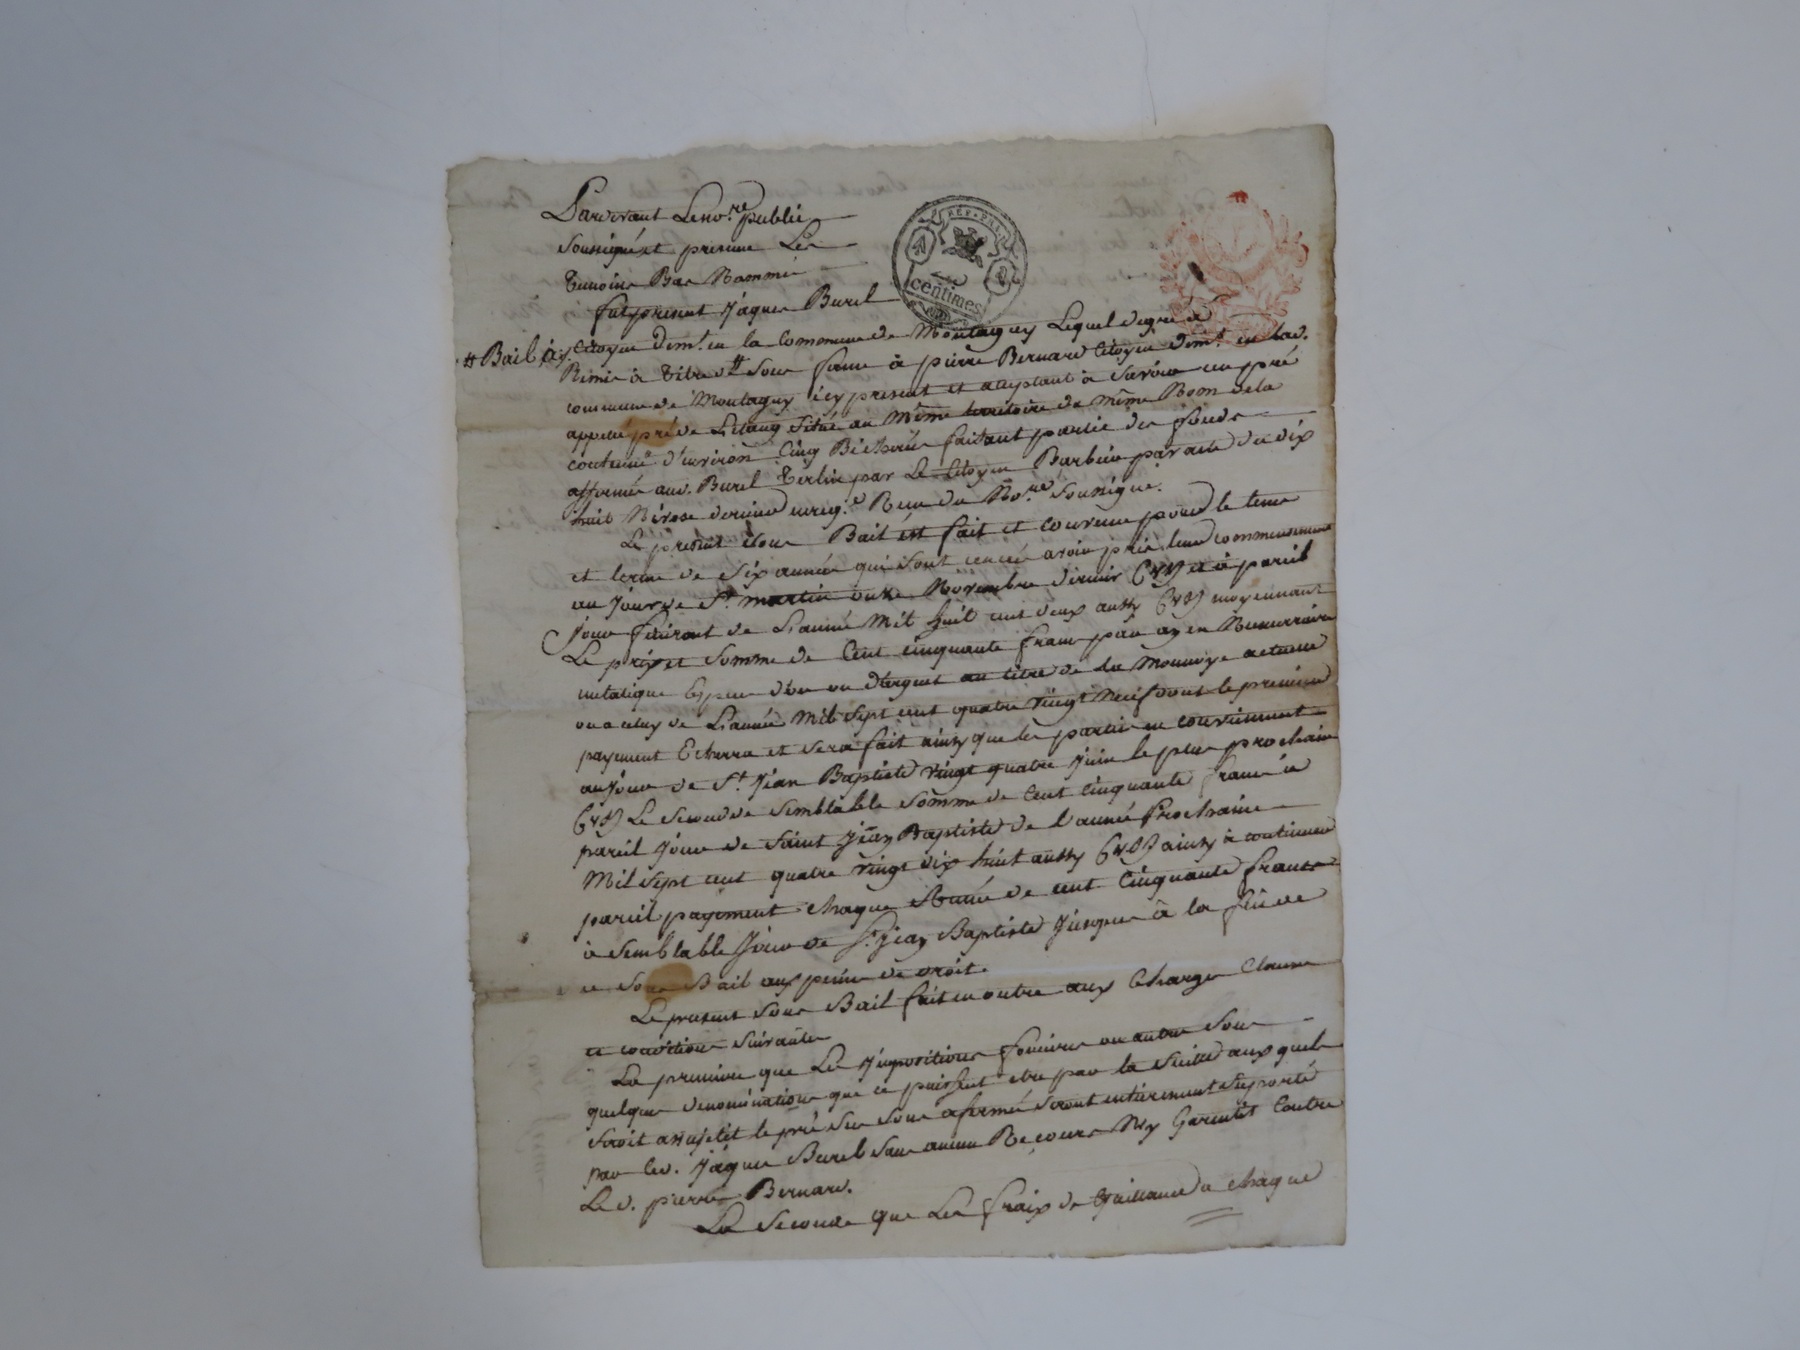 Pardevant Le no.re public
soussigné et presens Les
temoins Bas Nommés
fut present Jâques Burel
REP. FRA.
centimes
Citoyen dem.t en la Commune de Montagny Lequel de gré a
# Bail à
Remis à titre de # sous ferme à pierre Bernard Citoyen dem.t en lad.
commune de Montagny icy present et aceptant à Savoir un pré
appellé pré de Létang Situé au Même territoire de même Nom de la
contenue d'environ Cinq Bicherées faisant partie des fonds
affermés aud. Burel Verlin par Le Citoyen Barbier par acte du dix
huit Nivose dernier enreg.é Reçu du No.re Soussigné.
Le présent sous Bail est fait et convenu pour le tems
et terme de Six années qui sont censées avoir pris leur commencement
au Jour de S.t martin onze Novembre dernier (v.s) et à pareil
Jour finiront de L'année Mil huit cent deux aussy (v.s) moyennant
Le prix et Somme de Cent cinquante francs par an en Numerraire
metalique Especes d'or ou d'argent au titre de la Monnoye actuelle
ou a celuy de L'année Mil Sept cent quatre vingt Neuf dont le premier
payement Echerra et Sera fait ainsy que les parties en conviennent
au Jour de S.t Jean Baptiste vingt quatre Juin le plus prochain
(v.s) Le Second de Semblable Somme de Cent Cinquante francs à
pareil Jour de Saint Jean Baptiste de l'année Prochaine
Mil Sept cent quatre vingt dix huit aussy (v.s) ainsy à continuer
pareil payement chaque Année de cent Cinquante francs
à Semblable Jour de S.t Jean Baptiste Jusques à la fin de
ce Sous Bail aux peines de droit.
Le present Sous Bail fait en outre aux Charges Clauses
et conditions Suivantes
La premiere que Les Impositions foncieres ou autres Sous
quelques denominations que ce puissent etre par la Suitte aux quels
Seroit assujetit le pré Sus Sous afermé Seront entierement Suportés
par led. Jâques Burel Sans aucun Recours Ny Garentit Contre
Le d. pierre Bernard.
La Seconde que Les fraix de vaillance a chaque